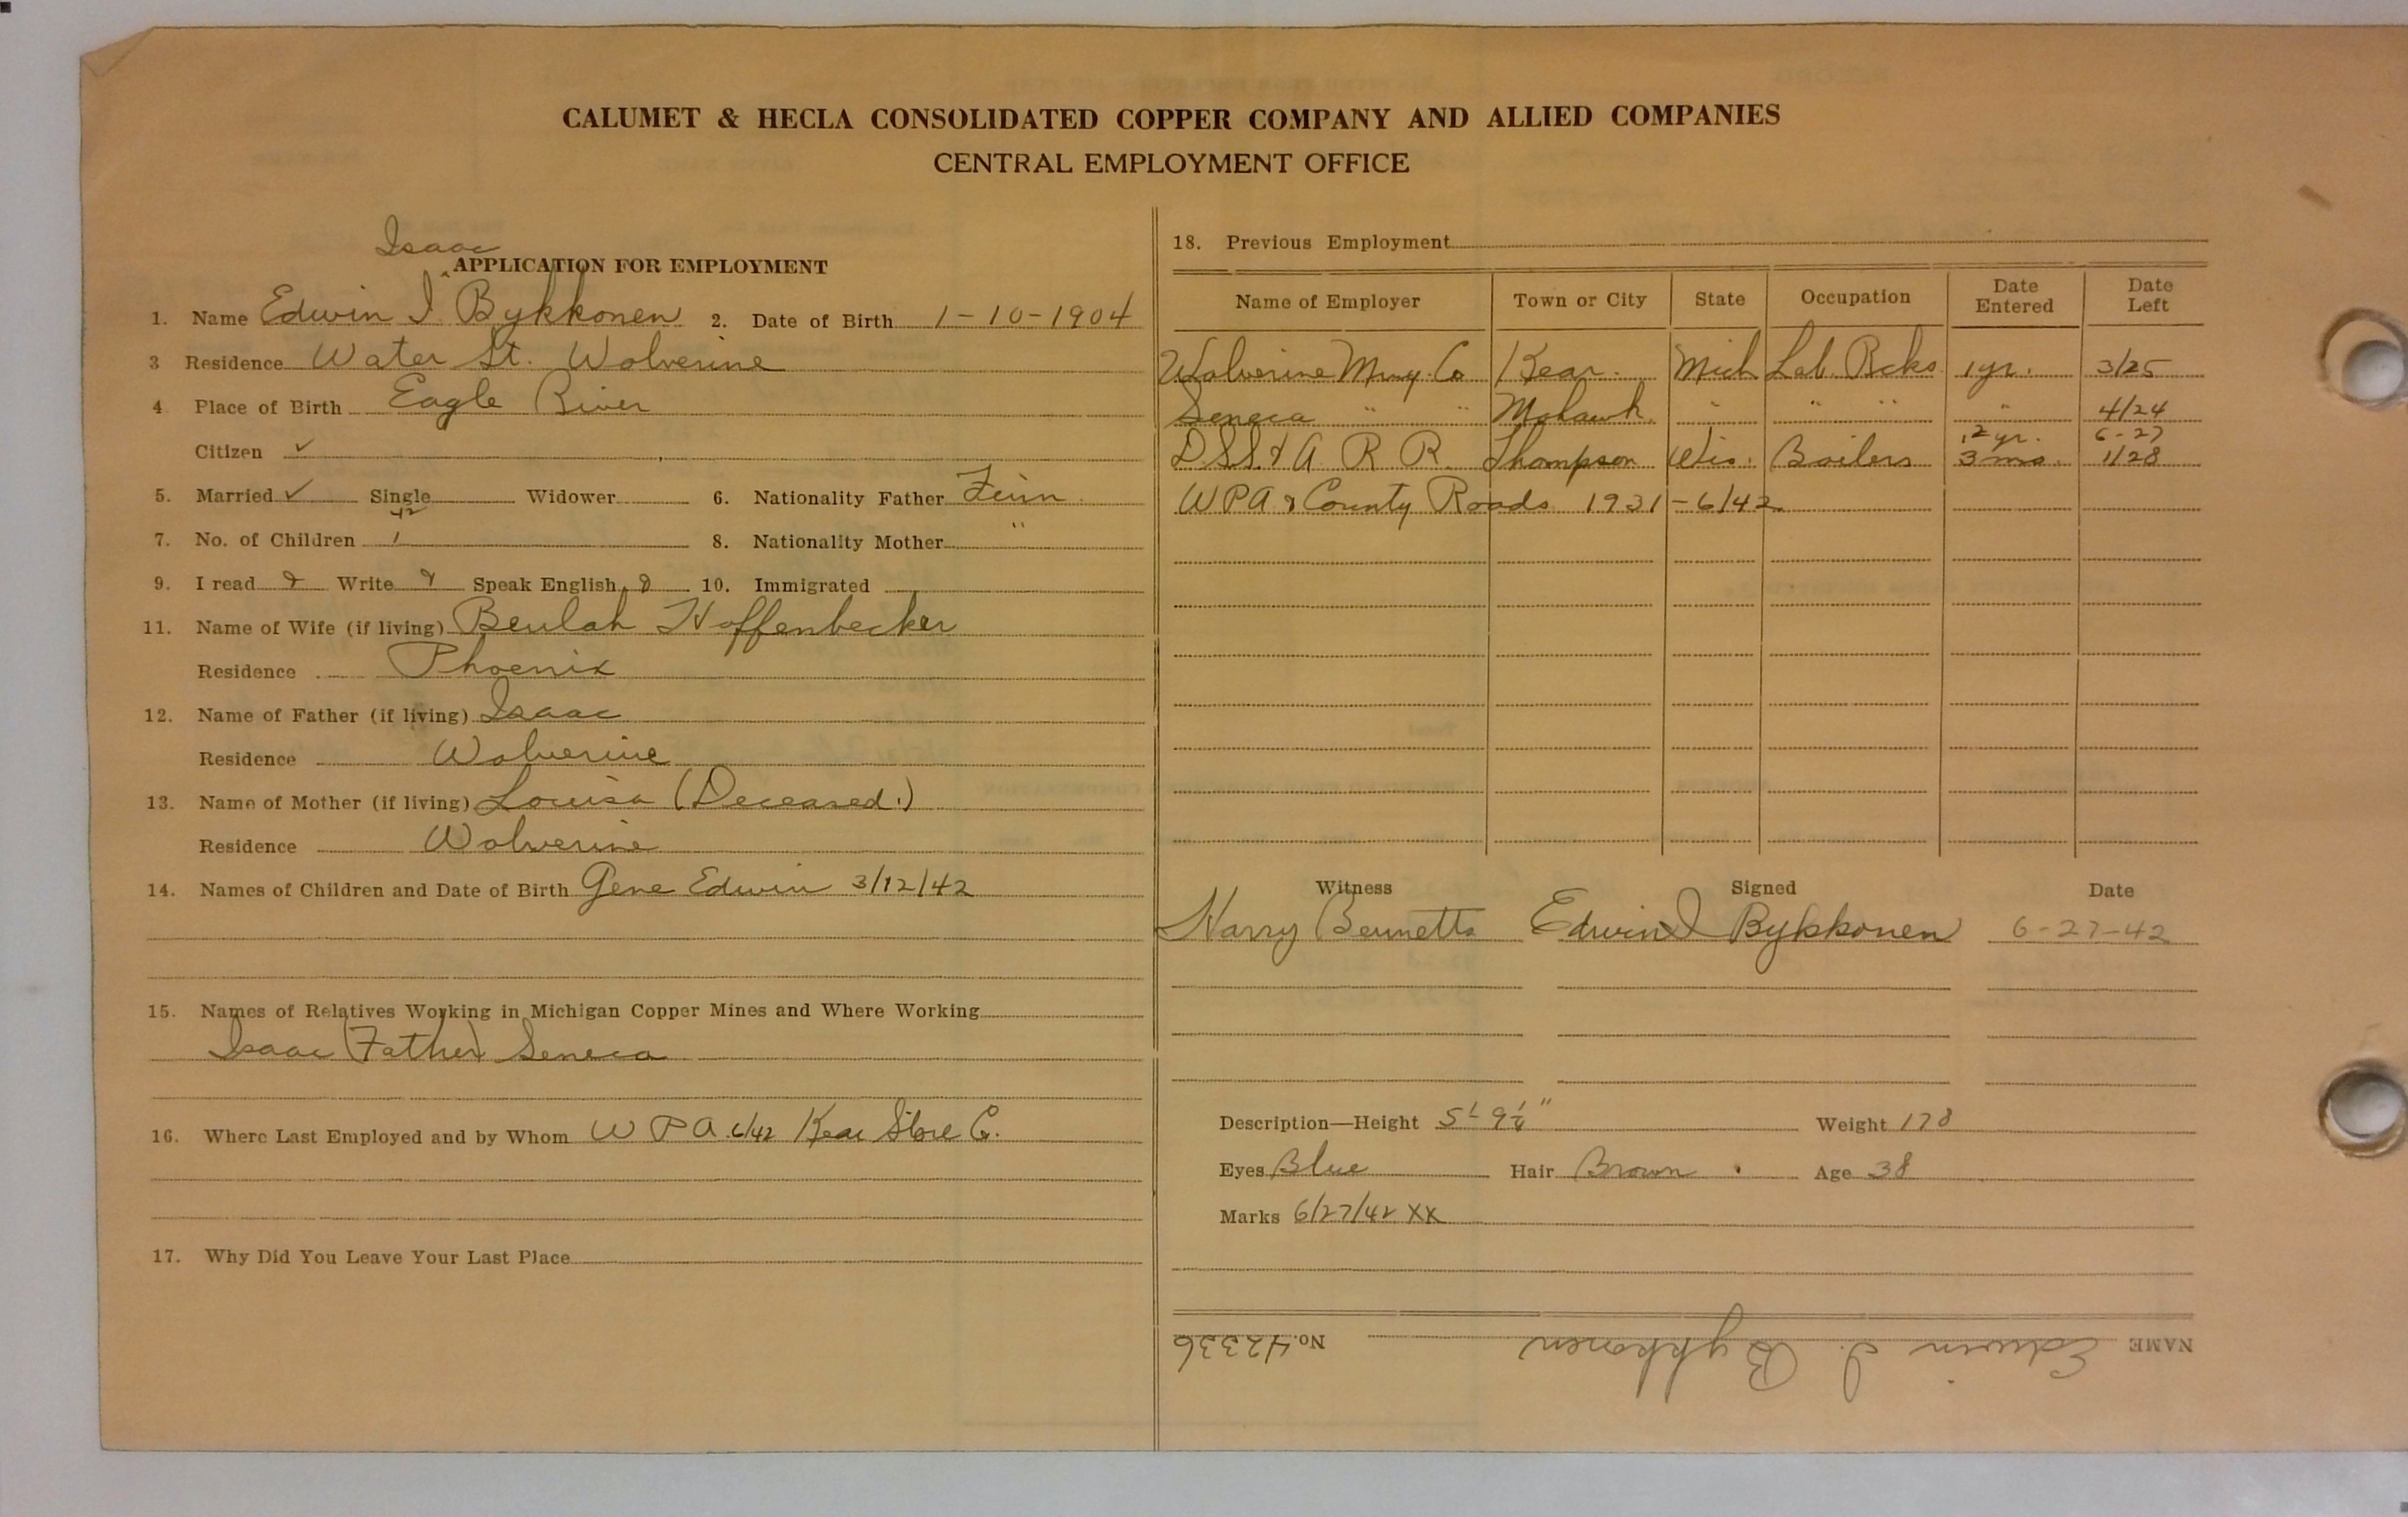 CALUMET & HECLA CONSOLIDATED COPPER COMPANY AND ALLIED COMPANIES
CENTRAL EMPLOYMENT OFFICE
Isaac
APPLICATION FOR EMPLOYMENT
1. Name Edwin I. Bykkonen 2. Date of Birth 1-10-1904
3 Residence Water St. Wolverine
4 Place of Birth Eagle River
Citizen ✓
5. Married ✓ Single Widower 6. Nationality Father Finn
42
7. No. of Children 1 8. Nationality Mother "
9. I read Write Speak English 10. Immigrated
11. Name of Wife (if living) Beulah Hoffenbecker
Residence Phoenix
12. Name of Father (if living) Isaac
Residence Wolverine
13. Name of Mother (if living) Louisa (Deceased.)
Residence Wolverine
14. Names of Children and Date of Birth Gene Edwin 3/12/42
15. Names of Relatives Working in Michigan Copper Mines and Where Working
Isaac (Father) Seneca
16. Where Last Employed and by Whom W P A 6/42 Kear Store Co.
17. Why Did You Leave Your Last Place
18. Previous Employment
Name of Employer Town or City State Occupation Date Entered Date Left
Wolverine Mng. Co Kear. Mich Lab. Rcks 1 yr. 3/25
Seneca " " Mohawk " " " " 4/24
2 yr. 6-27
D S S & A R R. Thompson Wis. Boilers 3 mo. 1/28
W P A & County Roads 1931 - 6/42
Witness Signed Date
Harry Bennetts Edwin I Bykkonen 6-27-42
Description—Height 5' 9 1/4" Weight 178
Eyes Blue Hair Brown Age 38
Marks 6/27/42 XX
NAME Edwin I. Bykkonen No. 42336